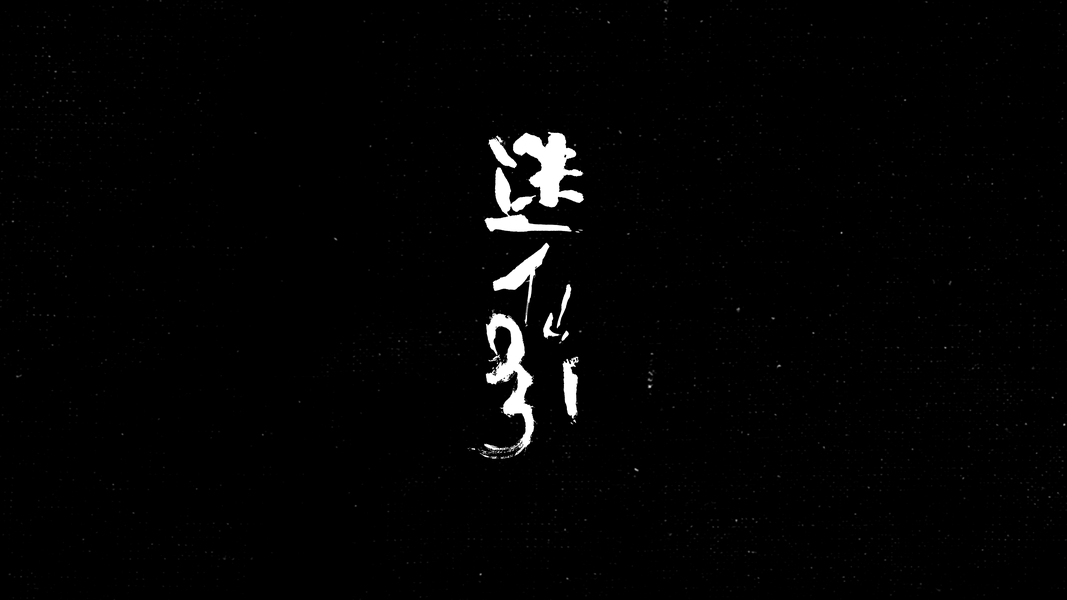 迷仙引